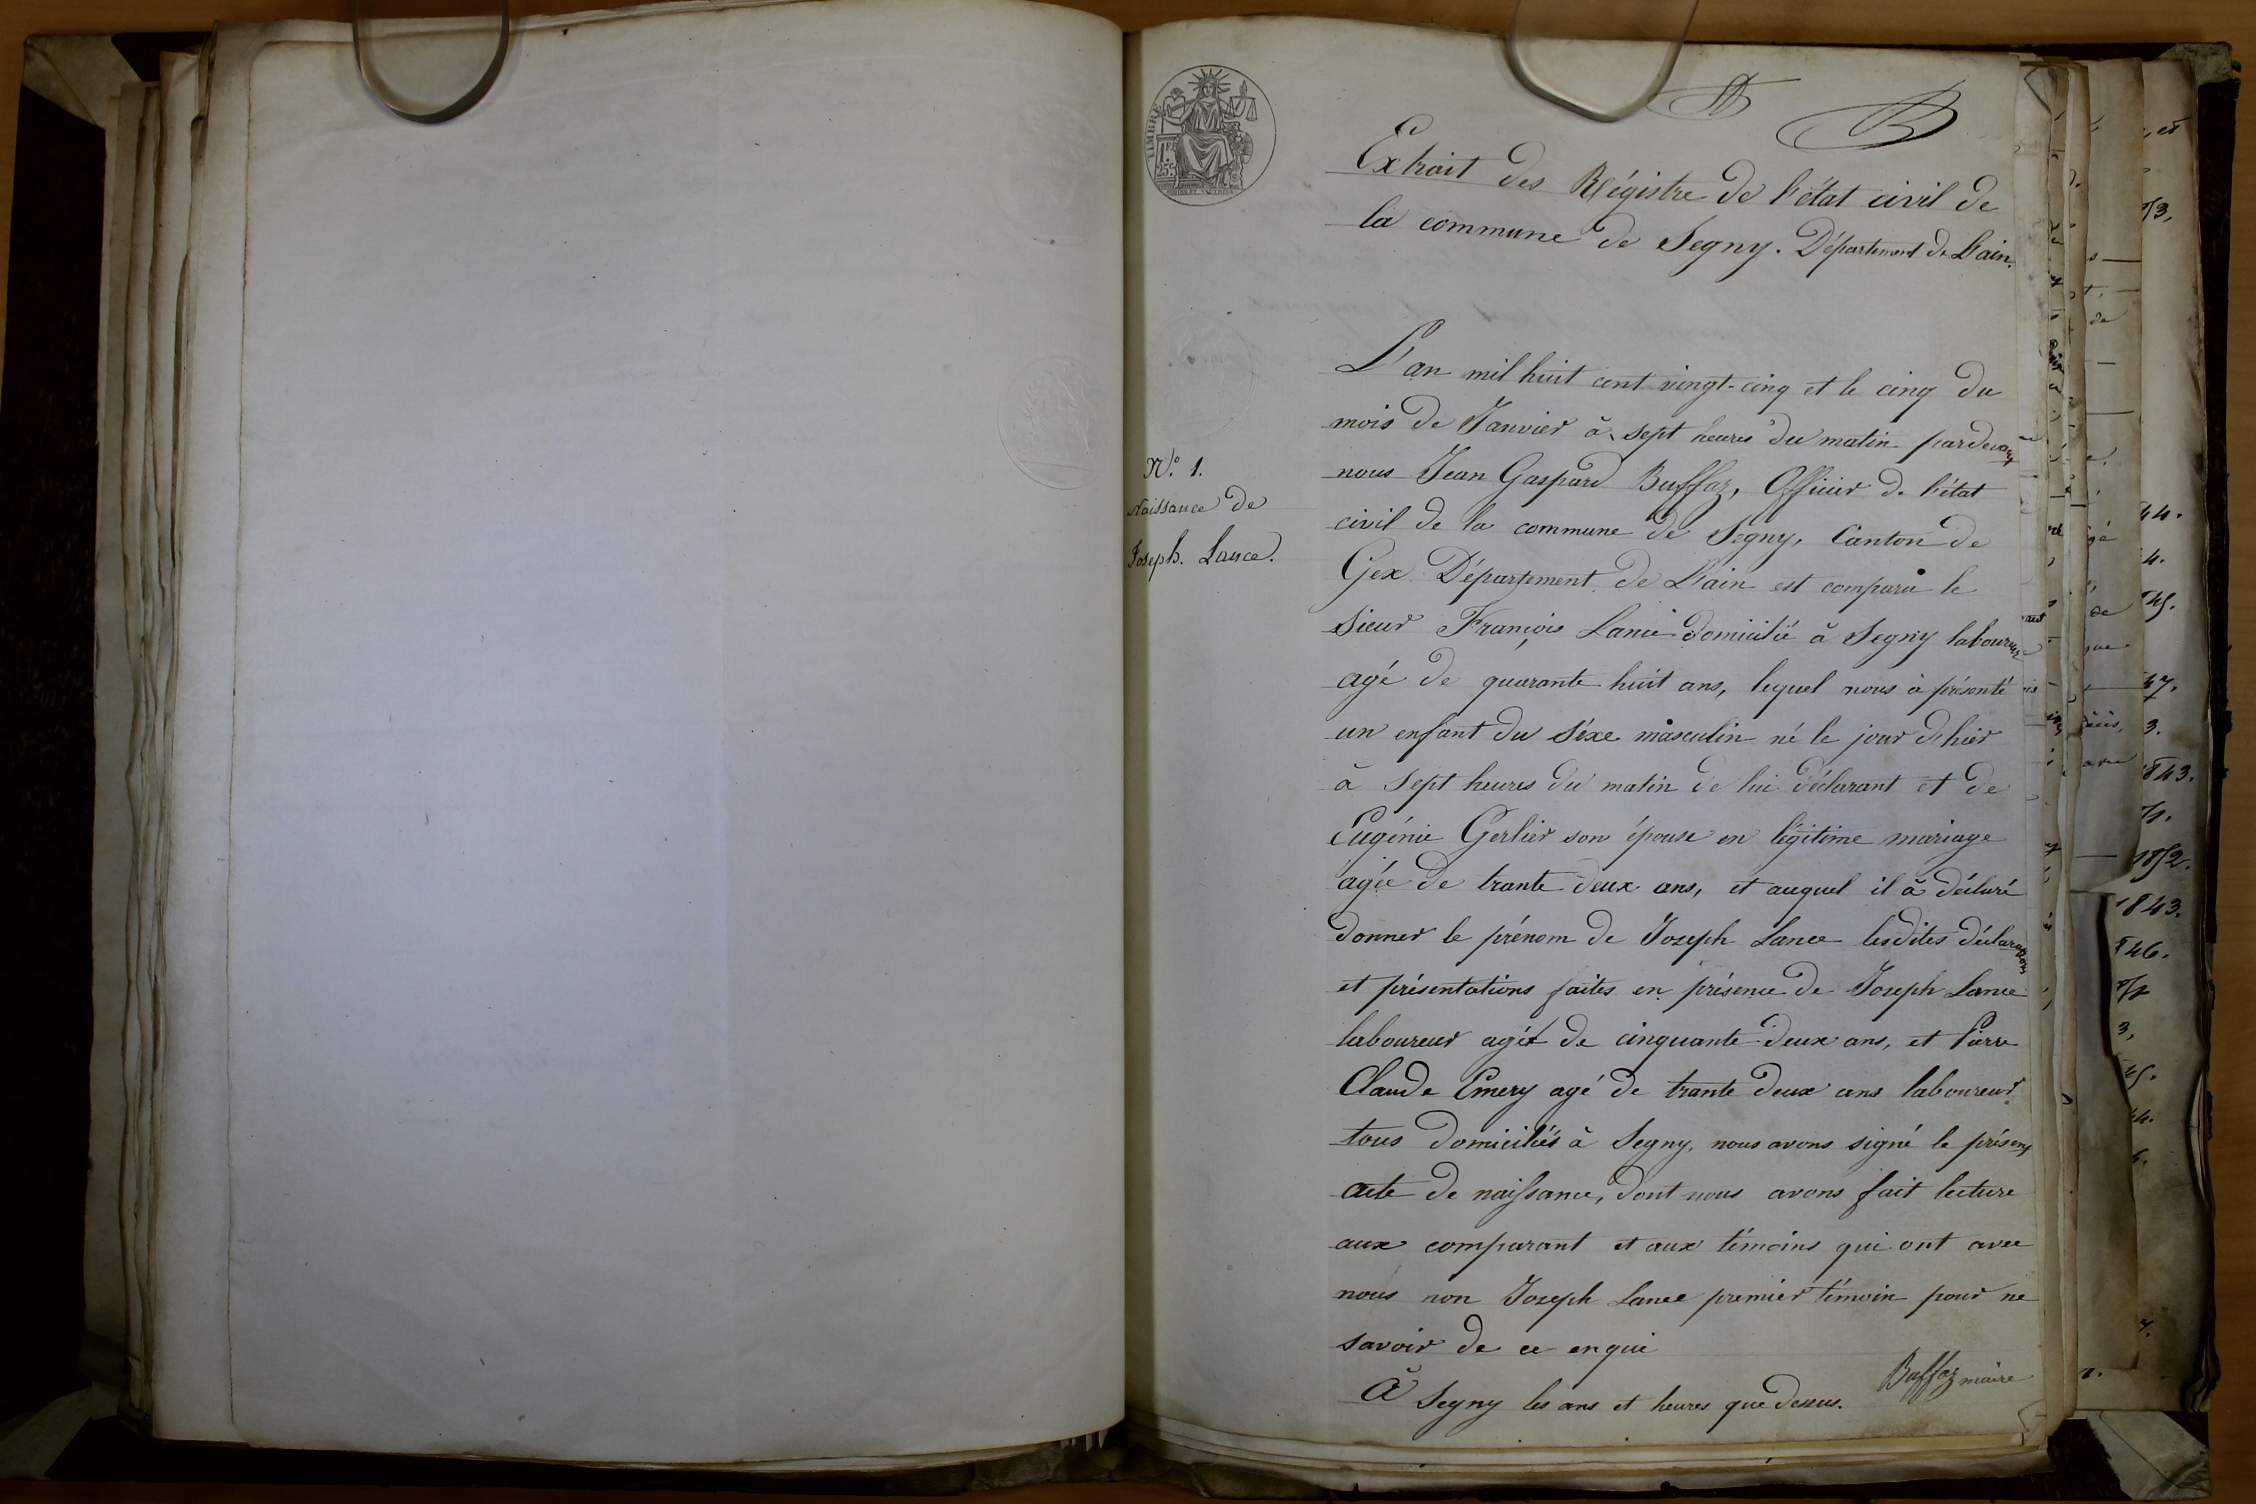 TIMBRE
1F
25c
Extrait des Régistre de l'état civil de
la commune de Segny. Département de L'ain.
L'an mil huit cent vingt-cinq et le cinq du
mois de Janvier à sept heures du matin pardevant
N.° 1.
Naissance de
Joseph. Lance.
nous Jean Gaspard Buffaz, Officier de l'état
civil de la commune de Segny, Canton de
Gex Département de L'ain est comparu le
Sieur François Lance domicilié à Segny laboureur
agé de quarante huit ans, lequel nous à présenté
un enfant du séxe masculin né le jour d'hier
à sept heures du matin de lui déclarant et de
Eugénie Gerlier son épouse en légitime mariage
agée de trante deux ans, et auquel il à déclaré
donner le prénom de Joseph Lance lesdites déclarations
et présentations faites en présence de Joseph Lance
laboureur agé de cinquante deux ans, et Pierre
Claude Emery agé de trante deux ans laboureur
tous domiciliés à Segny, nous avons signé le présent
acte de naissance, dont nous avons fait lecture
aux comparant et aux témoins qui ont avec
nous non Joseph Lance premier témoin pour ne
savoir de ce enquis
À Segny les ans et heures que dessus.
Buffaz maire